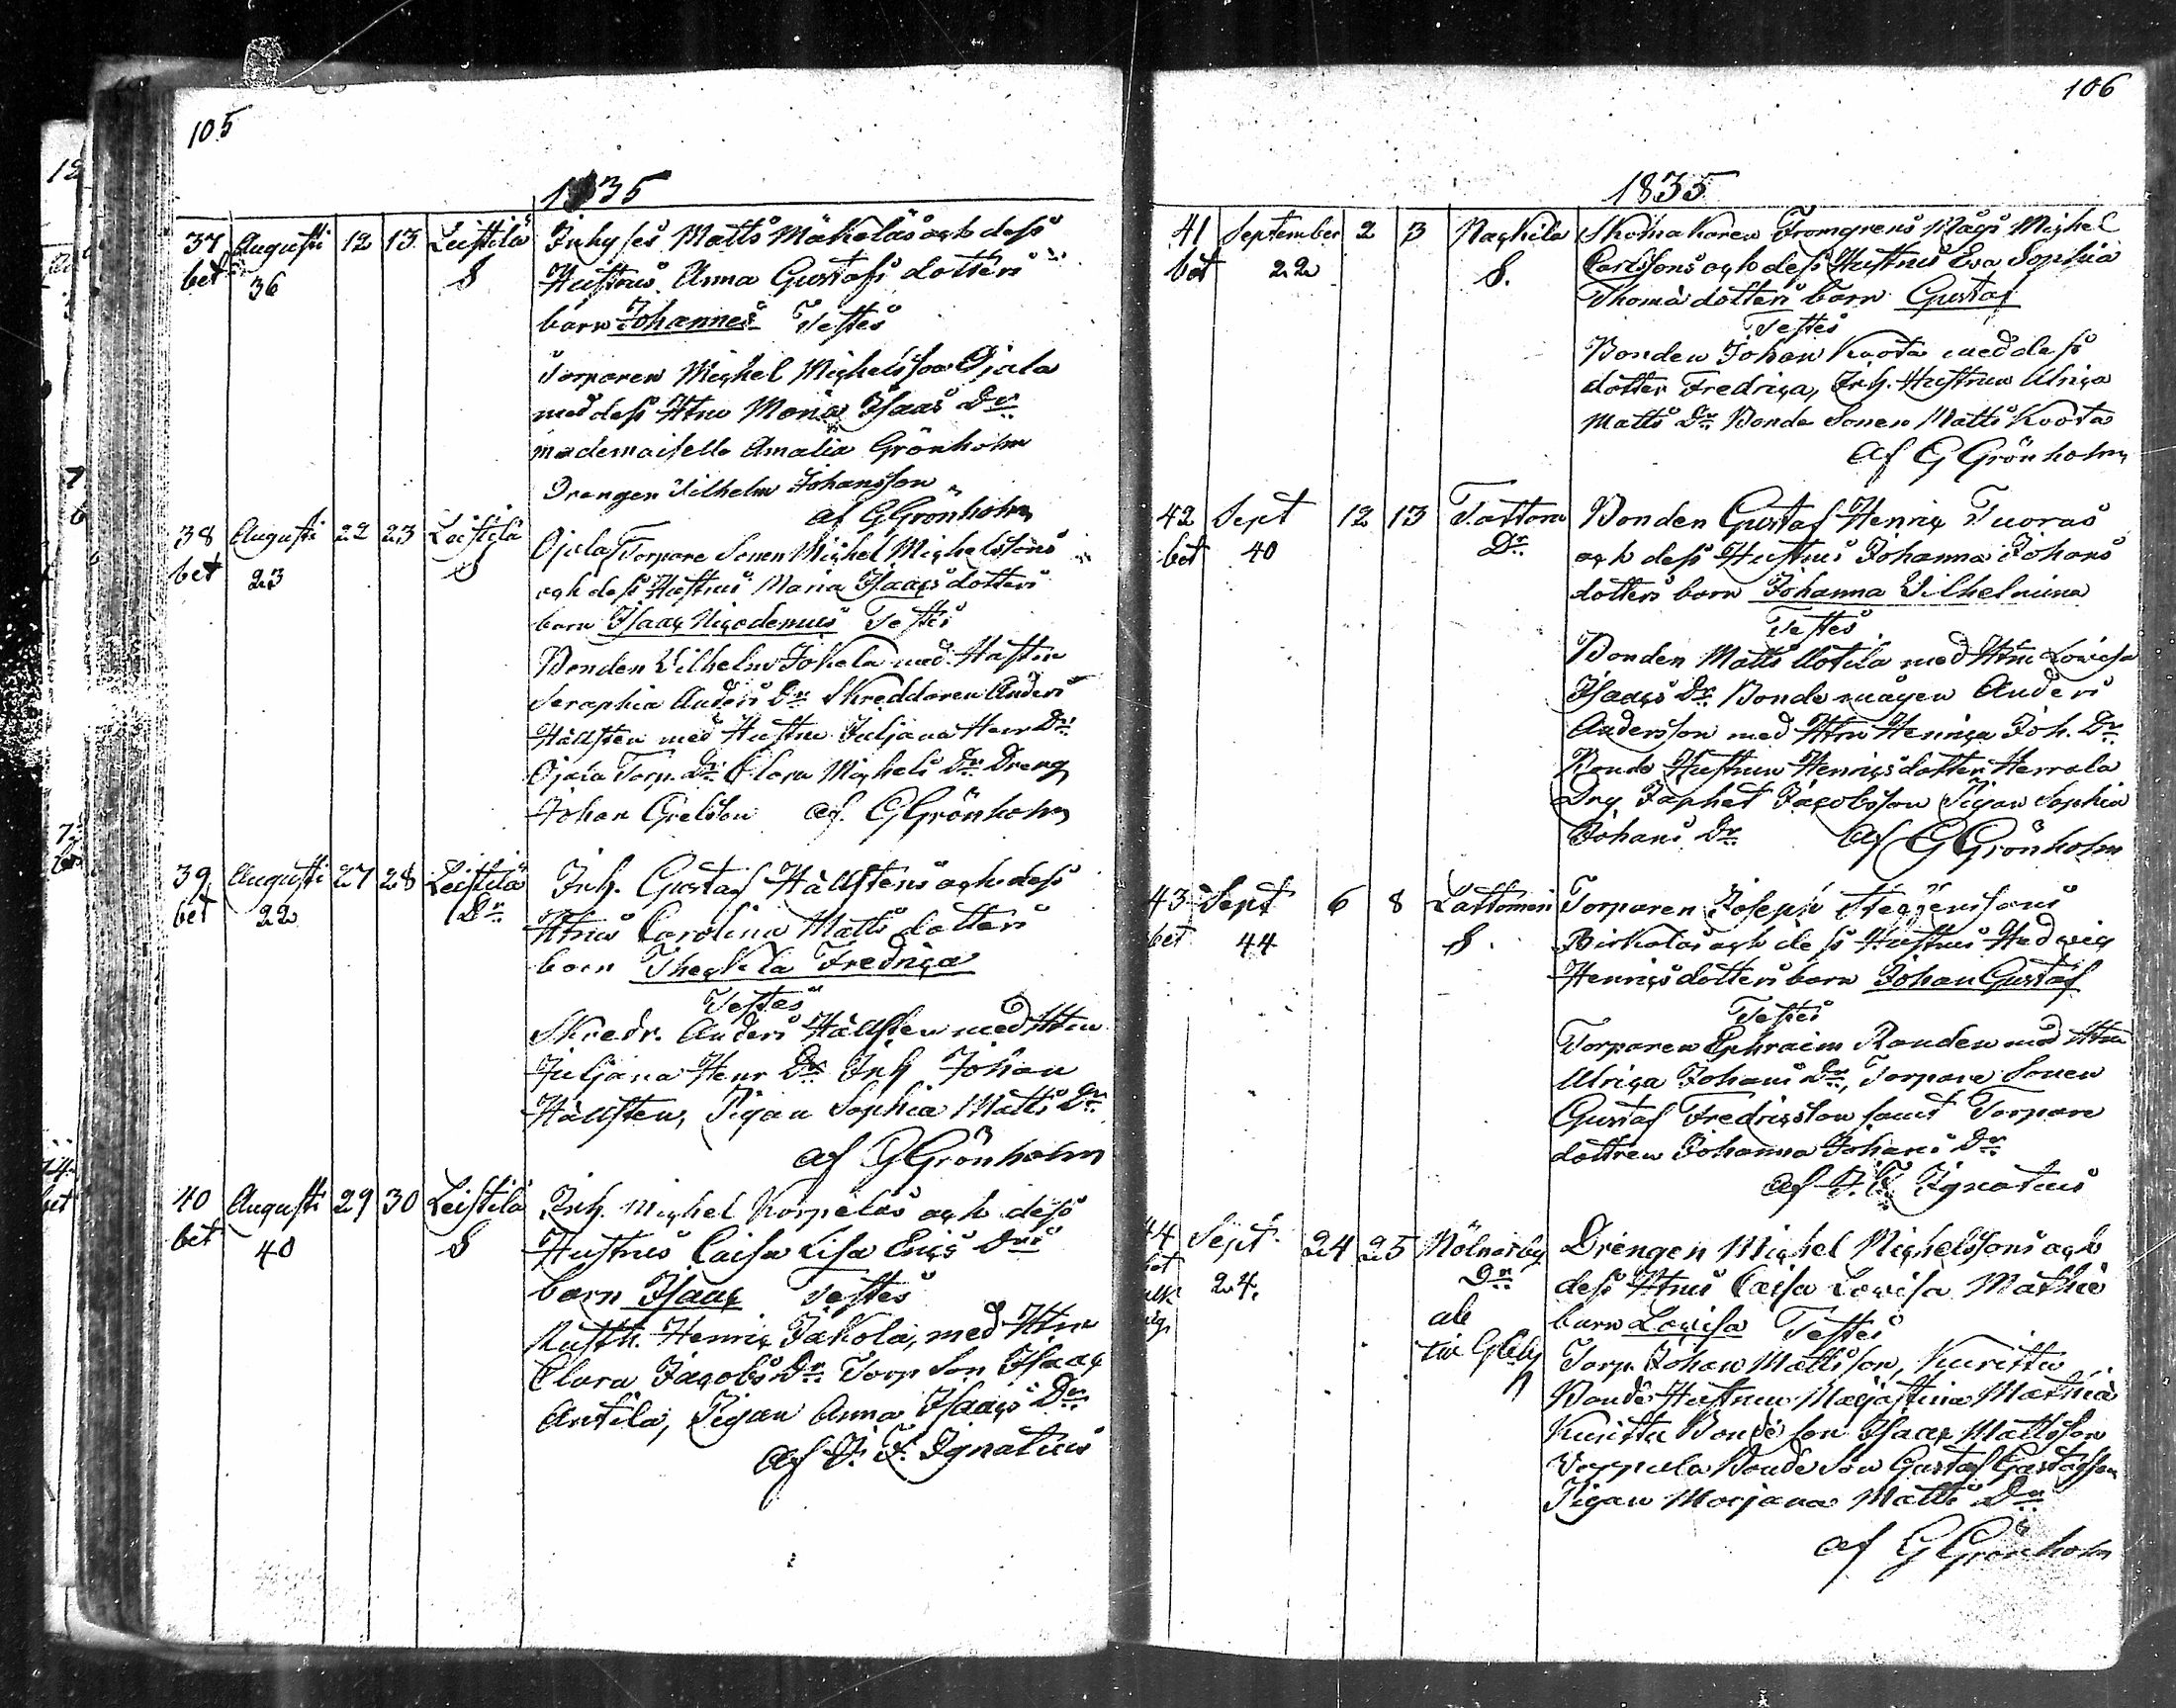 105
1835
37 Augusti 12 13 Leistilä Inhyses Matts Mäkeläs och dess
bet 36 S Hustrus Anna Gustafs dotters
barn Johannes Testes
Torparen Michel Michelsson Ojala
med dess Htru Maria Isaacs Dr
mademoiselle Amalia Grönholm
Drengen Vilhelm Johansson
af G Grönholm
38 Augusti 22 23 Leistilä Ojalas Torpare Sonen Michel Michelssons
bet 23 S och dess Hustrus Maria Isaacs dotters
barn Isaac Nicodemus Testes
Bonden Vilhelm Jokela med Hustru
Seraphia Anders Dr Skreddaren Anders
Hällsten med Hustru Juljana Henr Dr
Ojala Torp. Dr Clara Michels Dr Dreng
Johan Grelsson af G Grönholm
39 Augusti 27 28 Leistilä Inh. Gustaf Hällstens och dess
bet 22 Dr Htrus Carolina Matts dotters
barn Theckla Fredrica
Testes
Skredr. Anders Hällsten med Htru
Juljana Henr Dr Inh Johan
Hällsten, Pigan Sophia Matts Dr
af G Grönholm
40 Augusti 29 30 Leistilä Inh. Michel Korpelas och dess
bet 40 S Hustrus Caisa Lisa Erics Drs
barn Isaac Testes
Rustth. Henric Jakola, med Htru
Clara Jacobs Dr Torp Son Isaac
Antila, Pigan Anna Isaacs Dr
af J. F. Ignatius
106
1835
41 September 2 3 Nackila Skomakaren Fromgrens Mågs Michel
bet 22 S. Carlssons och dess Hustrus Eva Sophia
Thomä dotters barn Gustaf
Testes
Bonden Johan Knota med dess
dotter Fredrica, Inh. Hustrun Ulrica
Matts Dr Bonde Sonen Matts Knota
af G Grönholm
42 Sept 12 13 Tattara Bonden Gustaf Henric Tuoras
bet 40 Dr och dess Hustrus Johanna Johans
dotters barn Johanna Vilhelmina
Testes
Bonden Matts Uotila med Htru Lovisa
Isaacs Dr Bonde mågen Anders
Andersson med Htru Henrica Joh. Dr
Bonde Hustrun Henricsdotter Herrala
Drg Japhet Jacobsson Pigan Sophia
Johans Dr af G Grönholm
43 Sept 6 8 Lattomeri Torparen Joseph Steffenssons
bet 44 S. Birkalas och dess Hustrus Hedvig
Henricsdotters barn Johan Gustaf
Testes
Torparen Ephraim Randen med Htru
Ulrica Johans Dr, Torpare Sonen
Gustaf Fredricsson samt Torpare
dottren Johanna Johans Dr
af J. F. Ignatius
44 Sept. 24 25 Mölnarby Drengen Michel Michelssons och
bet 24. Dr dess Htrus Caisa Lovisa Mathiä
barn Lovisa Testes
Torp. Johan Mattsson, Kurittu
Bonde Hustrun Majastina Mathiä
Kuritta Bonde son Isaac Mattsson
Bonde Son Gustaf Gustafsson
Pigan Marjana Matts Dr
af G Grönholm